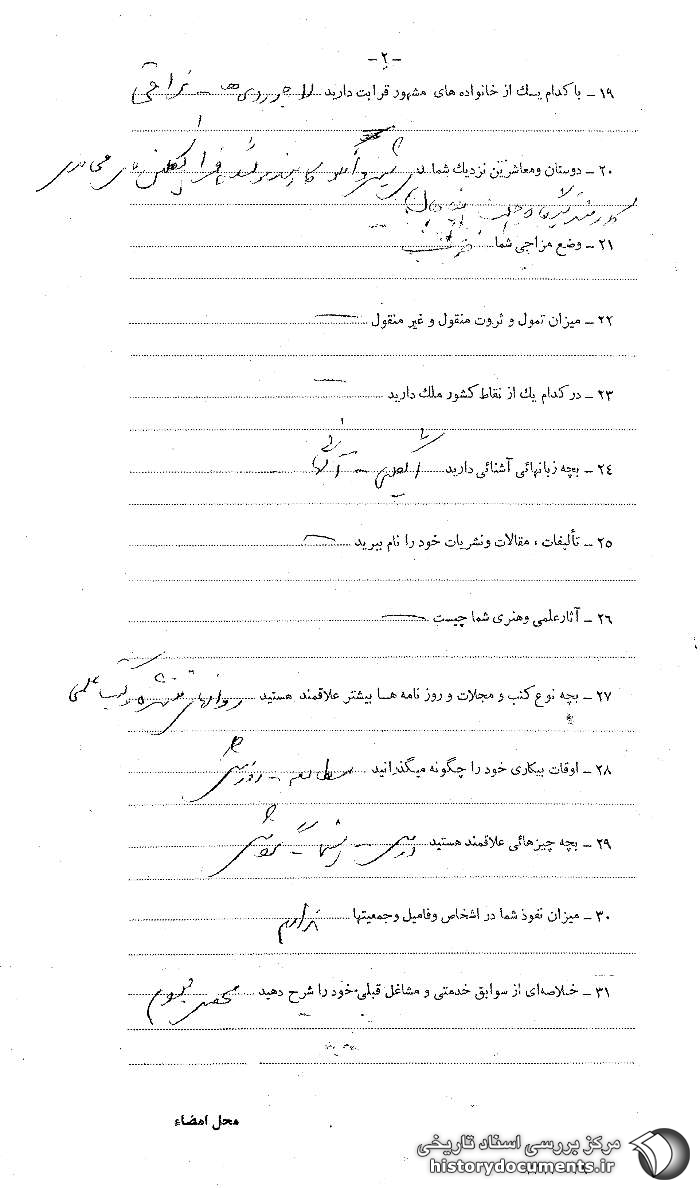 -۲-
۱۹ ـ با کدام یک از خانواده های مشهور قرابت دارید لاجوردی ها ـ نراقی
۲۰ ـ دوستان ومعاشرین نزدیك شما
۲۱ ـ وضع مزاجی شما خوب
۲۲ ـ میزان تمول و ثروت منقول و غیر منقول —
۲۳ ـ در کدام یك از نقاط کشور ملك دارید —
۲٤ ـ بچه زبانهائی آشنائی دارید انگلیسی ـ آلمانی
۲٥ ـ تألیفات ، مقالات ونشریات خود را نام ببرید —
۲٦ ـ آثار علمی وهنری شما چیست —
۲۷ ـ بچه نوع کتب و مجلات و روز نامه هـا بیشتر علاقمند هستید علمی
۲۸ ـ اوقات بیکاری خود را چگونه میگذرانید مطالعه ـ ورزش
۲۹ ـ بچه چیزهائی علاقمند هستید
۳۰ ـ میزان نفوذ شما در اشخاص وفامیل وجمعیتها ندارم
۳۱ ـ خلاصه‌ای از سوابق خدمتی و مشاغل قبلی خود را شرح دهید محصل بودم
محل امضاء
مرکز بررسی اسناد تاریخی
historydocuments.ir